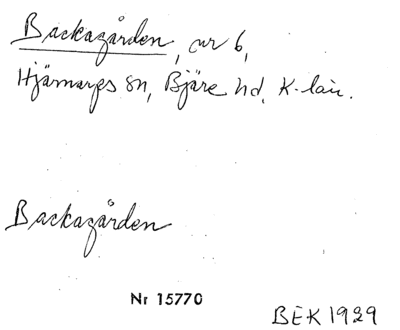 Backagården, nr 6,
Hjärnarps sn, Bjäre hd, K-län.
Backagården
Nr 15770
BEK 1929